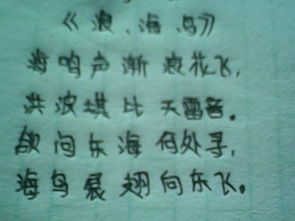 《浪、海鸟》
海鸣声渐浪花飞，
洪波堪比天雷音。
欲问东海何处寻，
海鸟展翅向东飞。